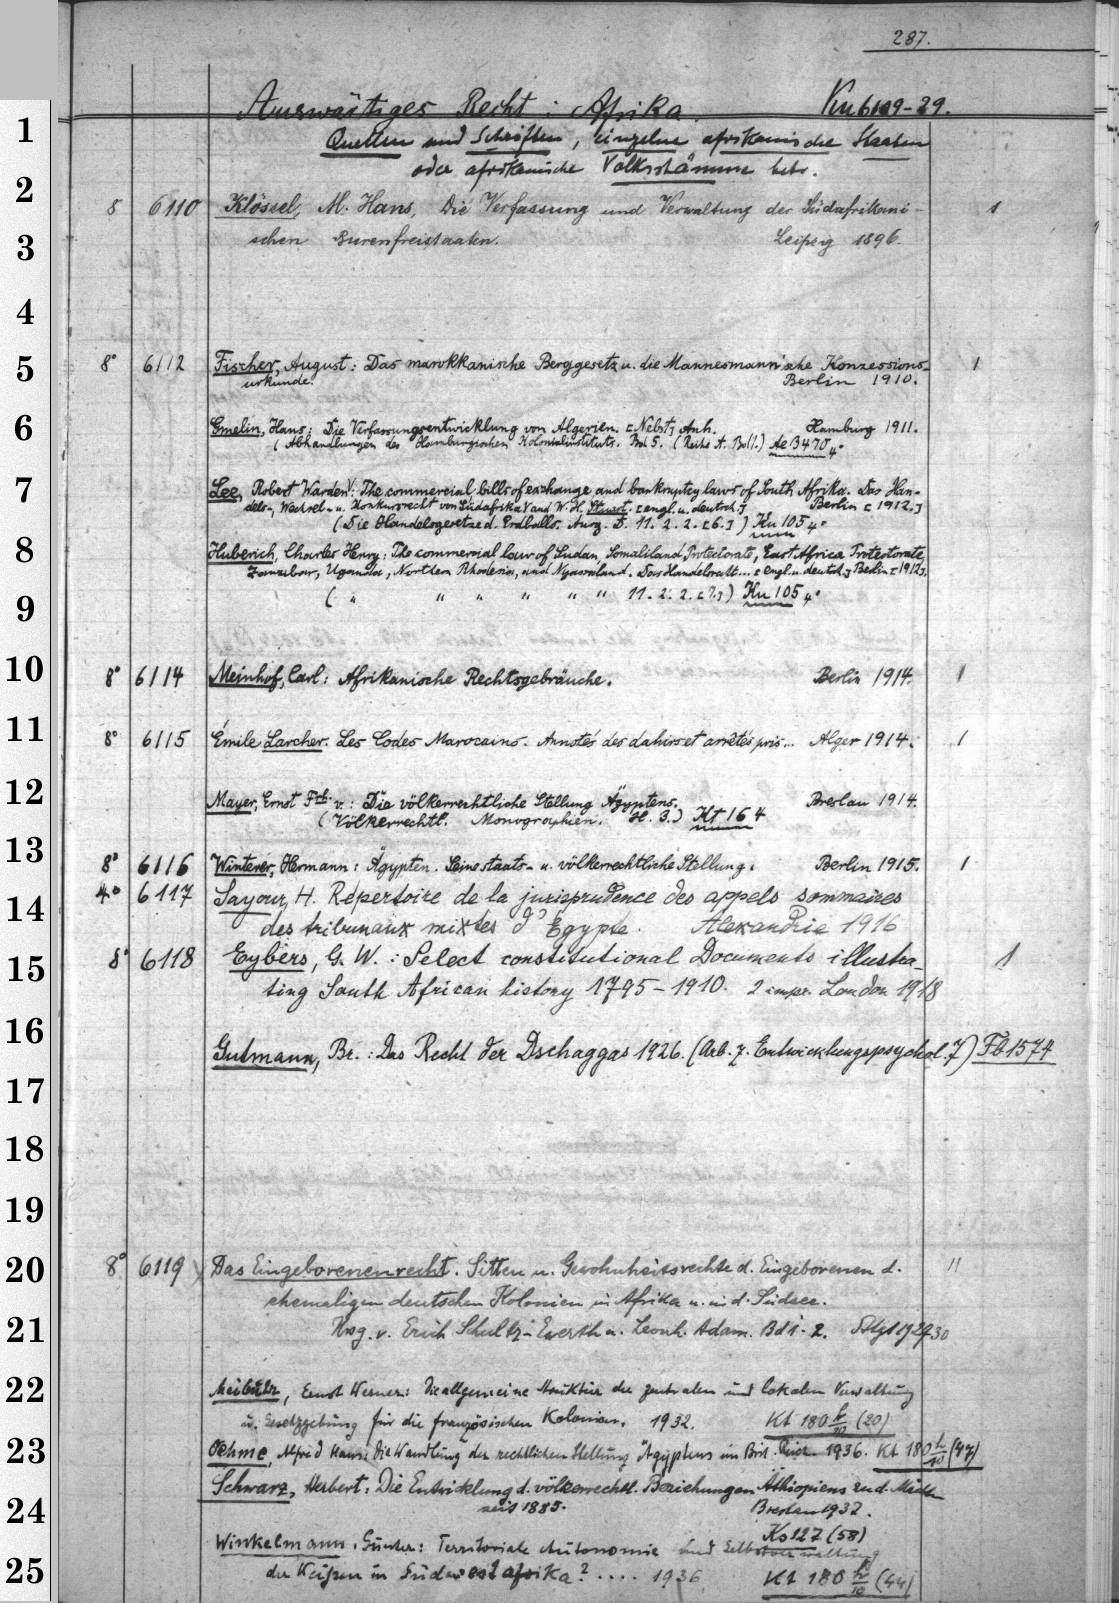 287.
Auswärtiges Recht: Afrika. Ku 6109-29.
1
Quellen und Schriften, einzelne afrikanische Staaten
oder afrikanische Volksstämme betr.
2
8 6110 Klössel, M. Hans, Die Verfassung und Verwaltung der Südafrikani- 1
3
schen Burenfreistaaten. Leipzig 1896.
4
5
8° 6112 Fischer, August: Das marokkanische Berggesetz u. die Mannesmann'sche Konzessions- 1
urkunde. Berlin 1910.
6
Gmelin, Hans: Die Verfassungsentwicklung von Algerien. [Nebst] Anh. Hamburg 1911.
(Abhandlungen des Hamburgischen Kolonialinstituts. Bd 5. (Reihe A. Bd 1.) Ae B 470 4°
7
Lee, Robert Warden: The commercial bills of exchange and bankruptcy laws of South Afrika. Das Han-
dels-, Wechsel- u. Konkursrecht von Südafrika and W. H. Stuart. [engl. u. deutsch.] Berlin [1912.]
(Die Handelsgesetze d. Erdballs. Ausg. D. 11. 2. 2. [6.]) Ku 105 4°
8
Huberich, Charles Henry: The commercial law of Sudan, Somaliland Protectorate, East Africa Protectorate,
Zanzibar, Uganda, Northern Rhodesia, and Nyasaland. Das Handelsrecht... [engl. u. deutsch.] Berlin [1912].
9
( " " " " " " 11. 2. 2. [7.]) Ku 105 4°
10
8° 6114 Meinhof, Carl: Afrikanische Rechtsgebräuche. Berlin 1914. 1
11
8° 6115 Émile Larcher. Les Codes Marocains. Annotés des dahirs et arrêtés pris... Alger 1914. 1
12
Mayer, Ernst Frh. v.: Die völkerrechtliche Stellung Ägyptens. Breslau 1914.
(Völkerrechtl. Monographien. H. 3.) Kt 16 4
13
8° 6116 Winterer, Hermann: Ägypten. Seine staats- u. völkerrechtliche Stellung. Berlin 1915. 1
14
4° 6117 Sayour, H. Répertoire de la jurisprudence des appels sommaires
des tribunaux mixtes d'Egypte. Alexandrie 1916
15
8° 6118 Eybers, G. W.: Select constitutional Documents illustra- 1
ting South African history 1795-1910. 2 impr. London 1918
16
Gutmann, Br.: Das Recht der Dschaggas 1926. (Arb. z. Entwicklungspsychol. 7) Fb 1574
17
18
19
20
8° 6119 Das Eingeborenenrecht. Sitten u. Gewohnheitsrechte d. Eingeborenen d. 11
ehemaligen deutschen Kolonien in Afrika u. in d. Südsee.
21
Hsg. v. Erich Schultz-Ewerth u. Leonh. Adam. Bd 1. 2. Stgt 1929 30
22
Ernst Werner: Die allgemeine Struktur der zentralen und lokalen Verwaltung
u. Gesetzgebung für die französischen Kolonien. 1932. Kt 180 h/10 (20)
23
Oehme, Alfred Hans: Die Wandlung der rechtlichen Stellung Ägyptens im Brit. Reich 1936. Kt 180 h/10 (47)
Schwarz, Herbert: Die Entwicklung d. völkerrechtl. Beziehungen Äthiopiens zu d. Mächten
24
seit 1885. Breslau 1937.
Ks 127 (58)
Winkelmann, Günter: Territoriale Autonomie und Selbstverwaltung
25
der Weißen in Südwestafrika? .... 1936. Kt 180 h/10 (44)